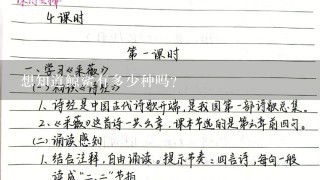 4课时
第一课时
一、学习《采薇》
想知道鲸鲨有多少种吗?
(一)初识《诗经》
1、诗经是中国古代诗歌开端,是我国第一部诗歌总集。
2、《采薇》这首诗一共六章,课本节选的是第六章前四句。
(二)诵读感知
1、结合注释,自由诵读。提示节奏:四言诗,每句一般
读成"二、二"节拍